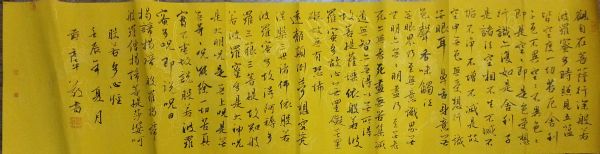 觀自在菩薩行深般若
波羅蜜多時照見五蘊
皆空度一切苦厄舍利
子色不異空空不異色色
即是空空即是色受想
行識亦復如是舍利子
是諸法空相不生不滅不
垢不淨不增不減是故
空中無色無受想行識
無眼耳鼻舌身意無
色聲香味觸法
無眼界乃至無意識界無
無明亦無無明盡乃至無老
死亦無老死盡無苦集滅
道無智亦無得以無所得
故菩提薩埵依般若波
羅蜜多故心無罣礙無罣
礙故無有恐怖
遠離顛倒夢想究竟
涅槃三世諸佛依般若
波羅蜜多故得阿耨多
羅三藐三菩提故知般
若波羅蜜多是大神咒
是大明咒是無上咒是無
等等咒能除一切苦真
實不虛故說般若波羅
蜜多咒即說咒曰
揭諦揭諦波羅揭諦
波羅僧揭諦菩提薩婆訶
般若多心經
壬辰年夏月
書